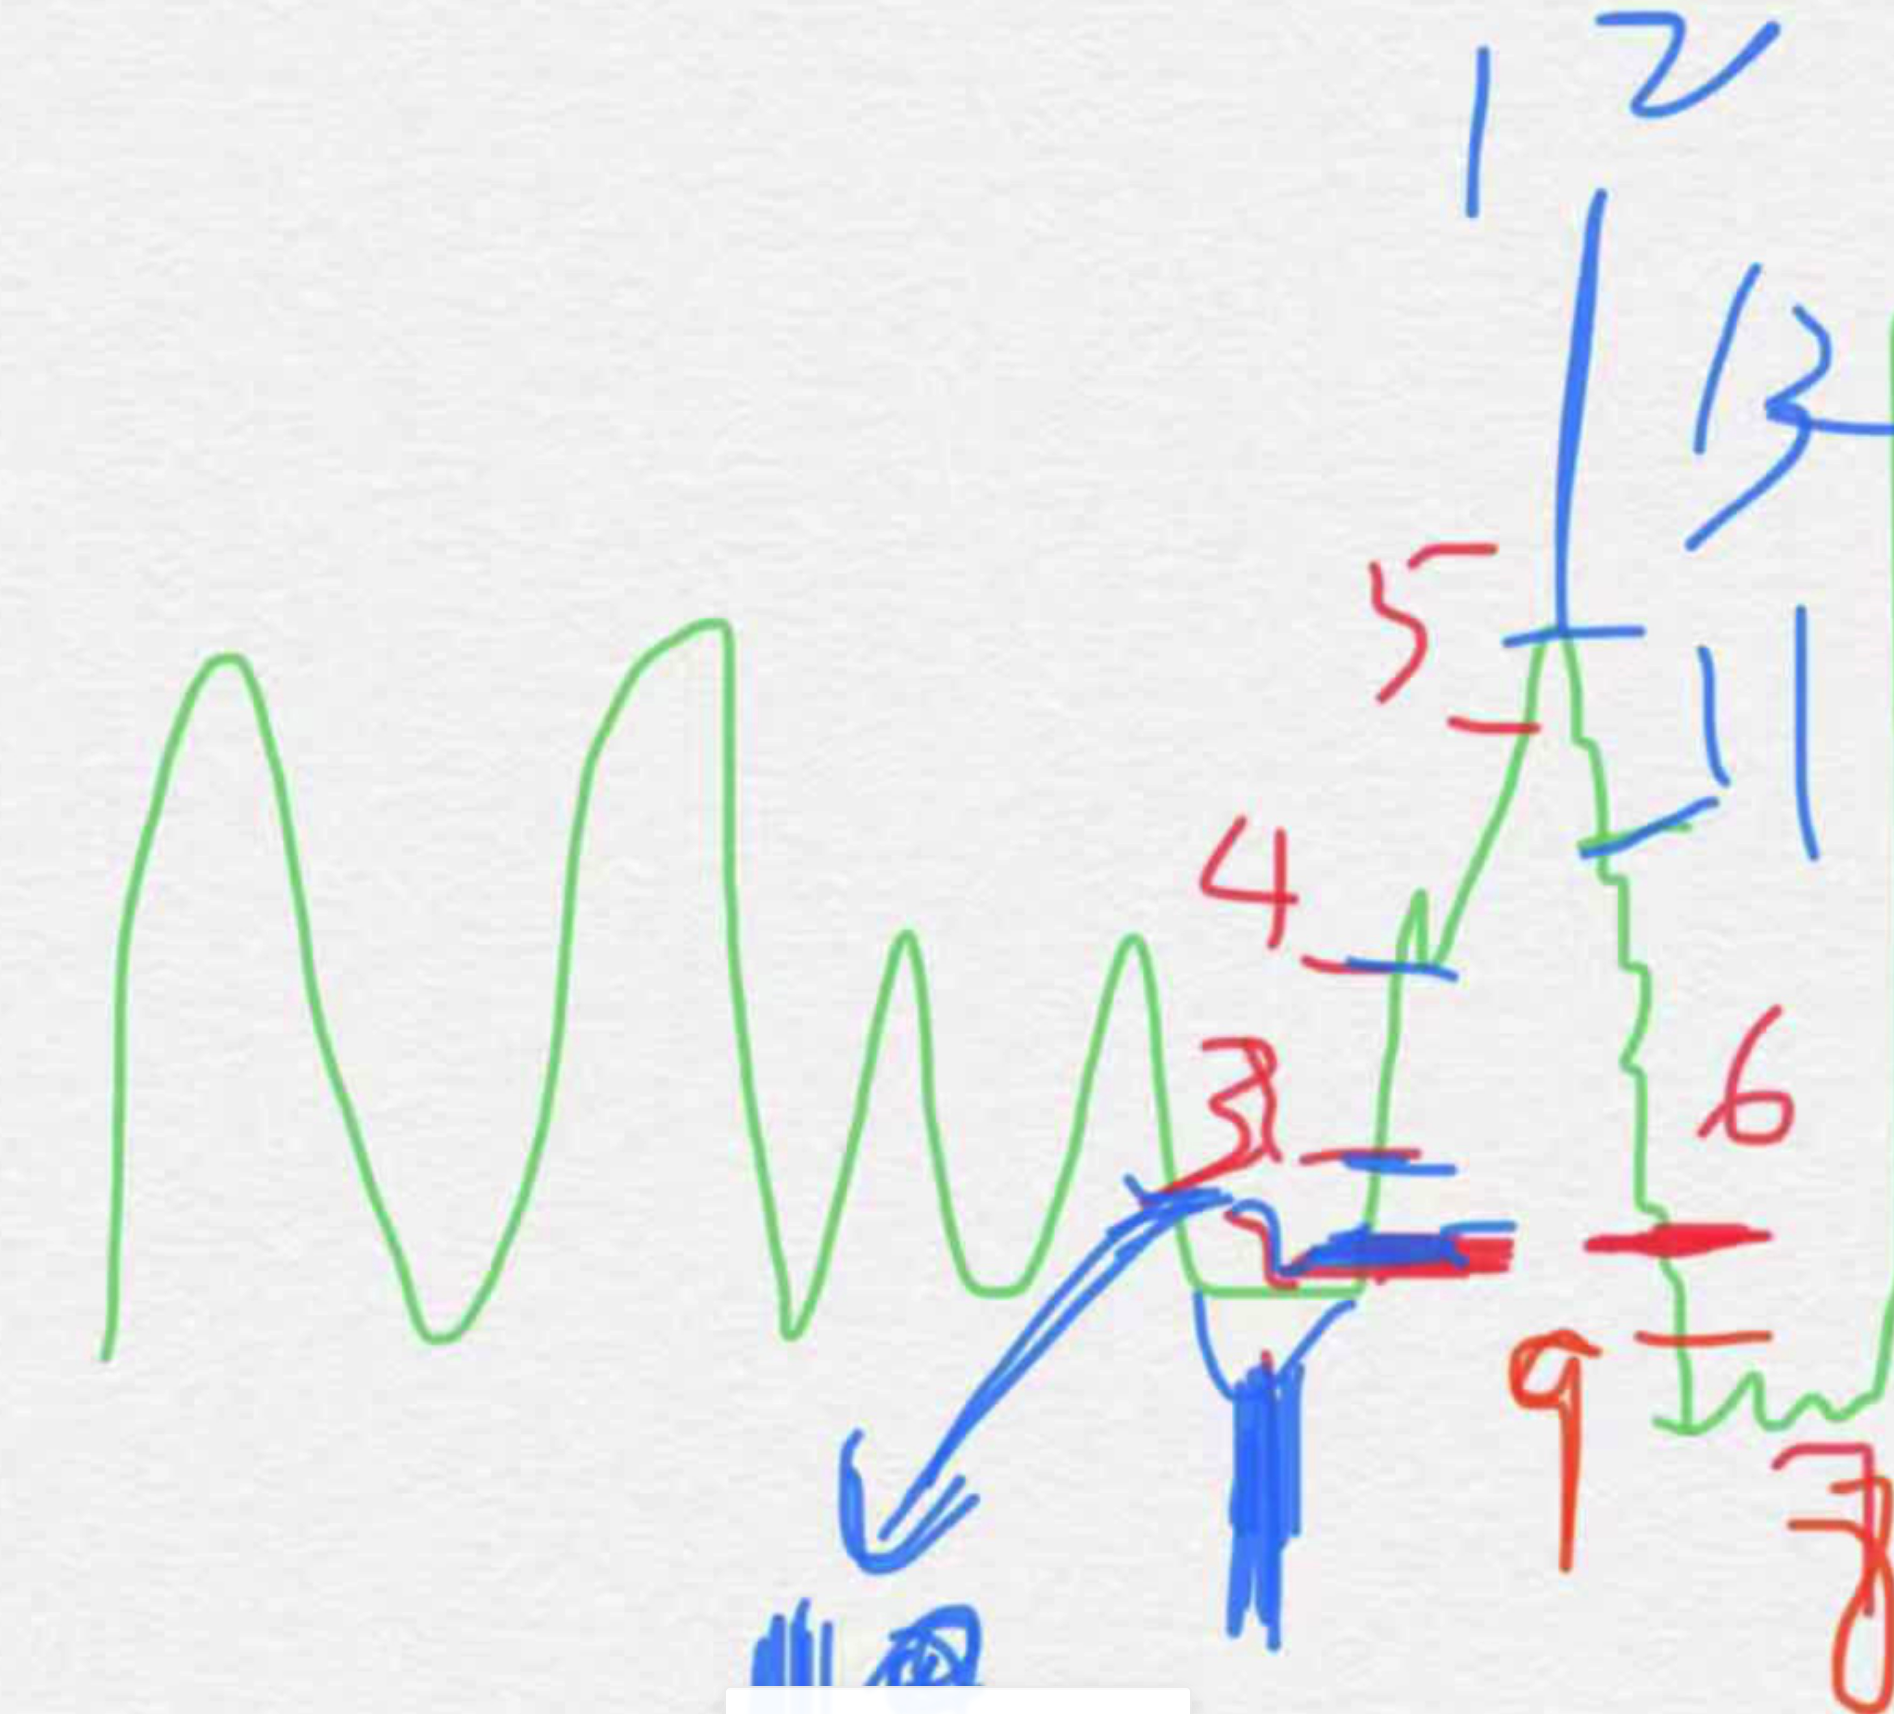 12
13
5
11
4
3
6
9
7